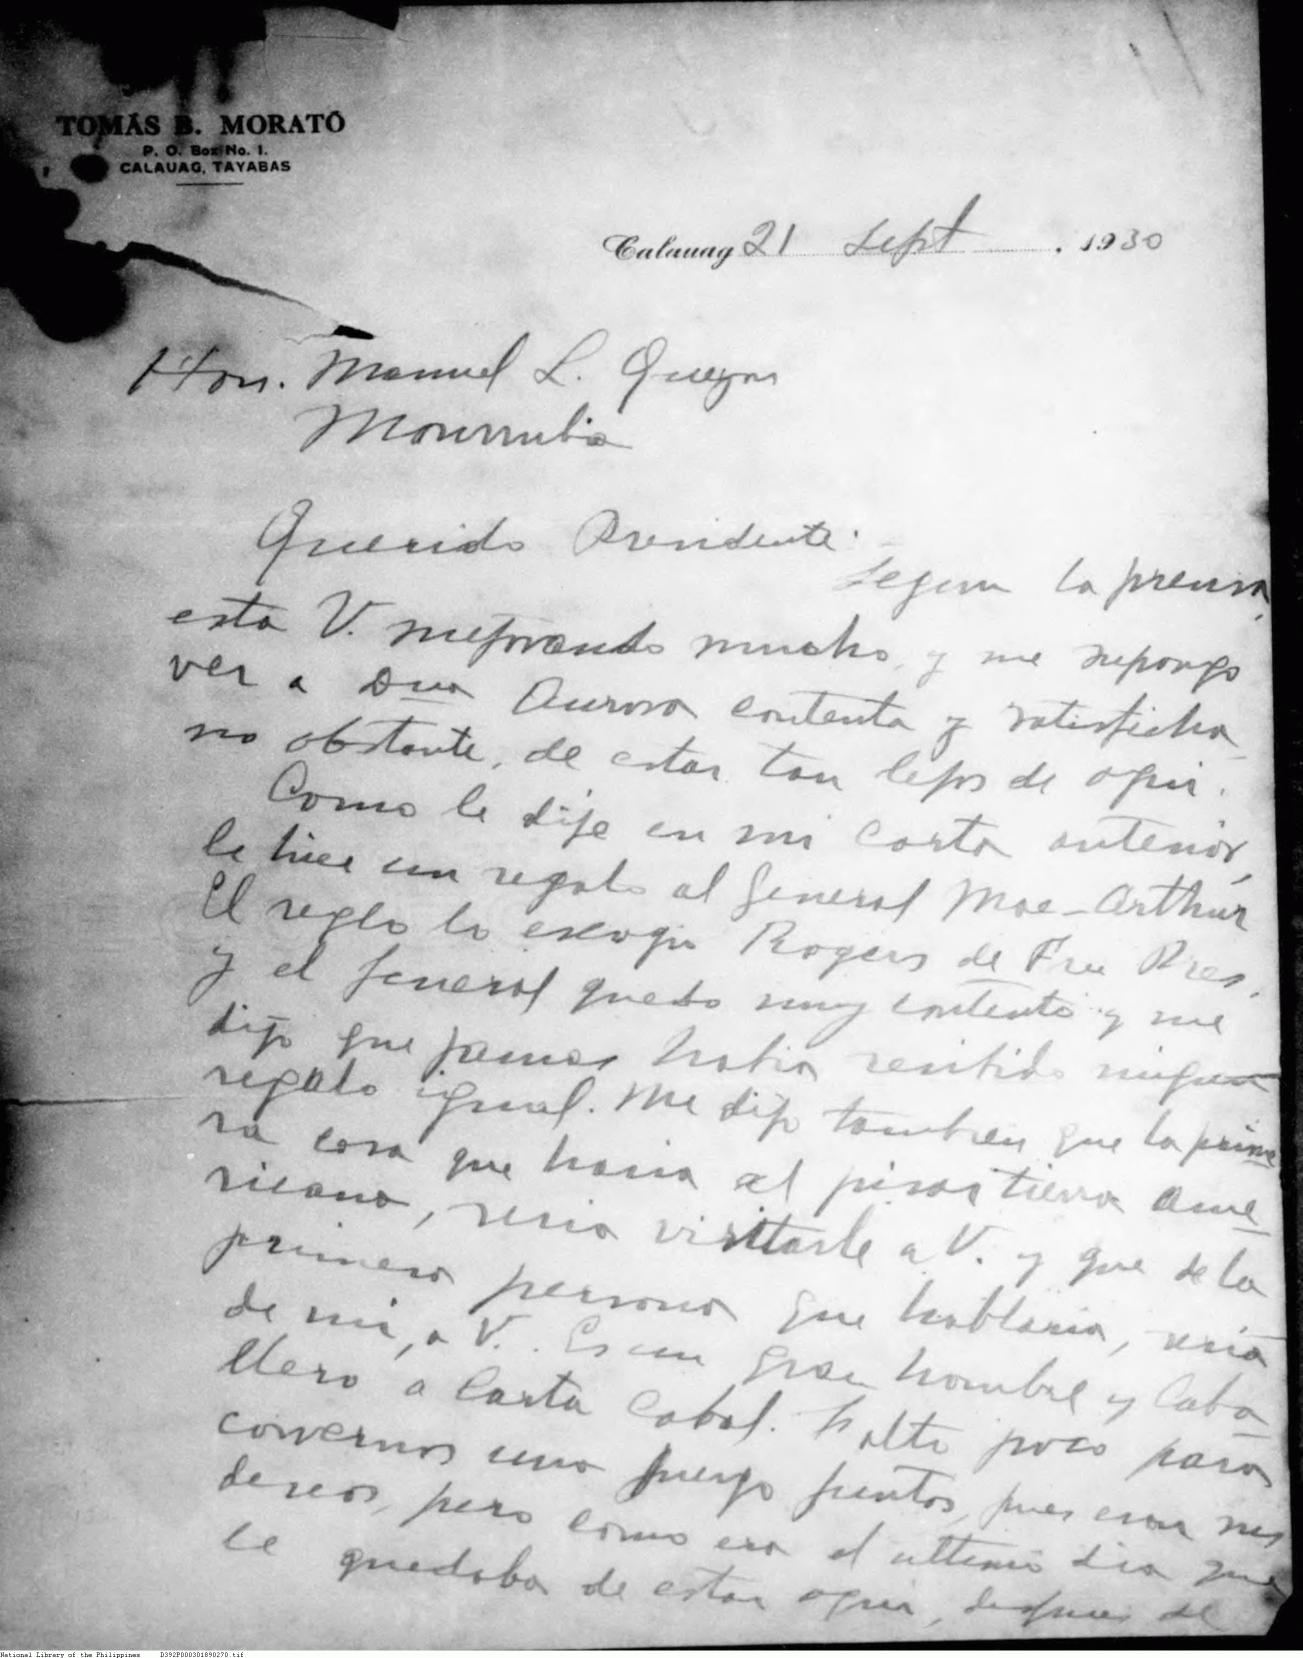 TOMÁS B. MORATÓ
P. O. Box No. 1.
CALAUAG, TAYABAS
Calauag 21 Sept. 1930
Hon. Manuel L. Quezon
Monrovia
Querido Presidente:
Segun la prensa,
esta V. mejorando mucho, y me supongo
ver a Dña Aurora contenta y satisfecha
no obstante, de estar tan lejos de aqui.
Como le dije en mi carta anterior,
le hice un regalo al General Mac-Arthur
El reglo lo escogio Rogers de Free Pres.
y el general quedo muy contento y me
dijo que jamas habia sentido ningun
regalo igual. Me dijo tambien que la prime
ra cosa que haria al pisar tierra Ame-
ricana, seria visitarle a V. y que de la
primera persona que hablaria, seria
de mi, a V. Es un gran hombre y Caba-
llero a Carta Cabal. Falto poco para
corrernos una juerga juntos, pues eran mis
deseos, pero como era el ultimo dia que
le quedaba de estar aqui, despues de
National Library of the Philippines D392P000301890270.tif